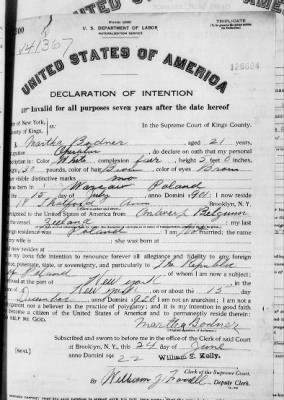 U. S. DEPARTMENT OF LABOR
NATURALIZATION SERVICE
TRIPLICATE
141367
UNITED STATES OF AMERICA
DECLARATION OF INTENTION
Invalid for all purposes seven years after the date hereof
of New York,
County of Kings,
In the Supreme Court of Kings County.
Martha Bodner, aged 21 years,
occupation Operator, do declare on oath that my personal
description is: Color White, complexion fair, height 5 feet 0 inches,
color of hair Brown, color of eyes Brown
visible distinctive marks
born in Warsaw Poland
15 day of July, anno Domini 901; I now reside
emigrated to the United States of America from Antwerp Belgium
Zeeland; my last
residence was Poland; I am not married; the name
my wife is she was born at
resides at
my bona fide intention to renounce forever all allegiance and fidelity to any foreign
potentate, state, or sovereignty, and particularly to The Republic
of Poland, of which I am now a subject;
arrived at the port of New York, in the
New York on or about the 15 day
December, anno Domini 1920; I am not an anarchist; I am not a
polygamist nor a believer in the practice of polygamy; and it is my intention in good faith
to become a citizen of the United States of America and to permanently reside therein:
HELP ME GOD.
Martha Bodner
Subscribed and sworn to before me in the office of the Clerk of said Court
[SEAL]
at Brooklyn, N. Y., this 24 day of June
anno Domini 1922
William E. Kelly,
Clerk of the Supreme Court.
By William J.
Deputy Clerk.